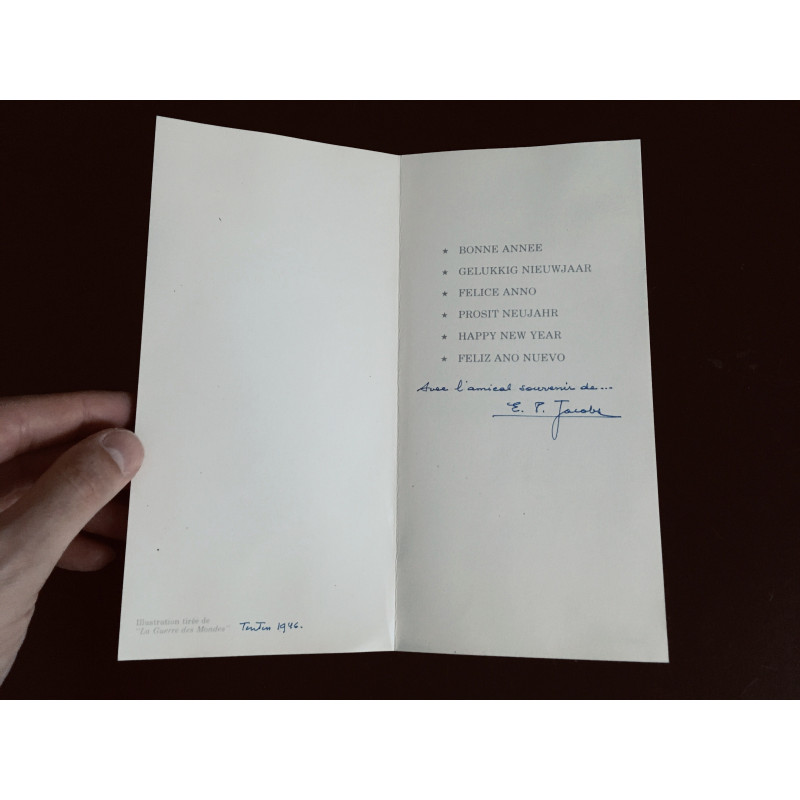 Illustration tirée de
"La Guerre des Mondes" TinTin 1946.
★ BONNE ANNEE
★ GELUKKIG NIEUWJAAR
★ FELICE ANNO
★ PROSIT NEUJAHR
★ HAPPY NEW YEAR
★ FELIZ ANO NUEVO
Avec l'amical souvenir de...
E. P. Jacobs